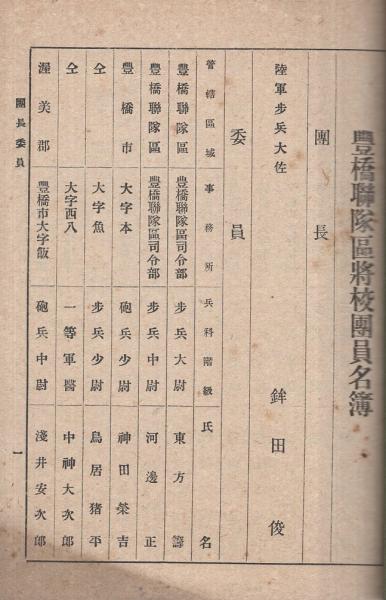 豐橋聯隊區將校團員名簿
團長
陸軍步兵大佐 鉾田俊
委員
管轄區域 事務所 兵科階級 氏名
豐橋聯隊區 豐橋聯隊區司令部 步兵大尉 東方籌
豐橋聯隊區 豐橋聯隊區司令部 步兵中尉 河邊正
豐橋市 大字本 砲兵少尉 神田榮吉
仝 大字魚 步兵少尉 鳥居猪平
仝 大字西八 一等軍醫 中神大次郎
渥美郡 豐橋市大字飯 砲兵中尉 淺井安次郎
團長委員 一